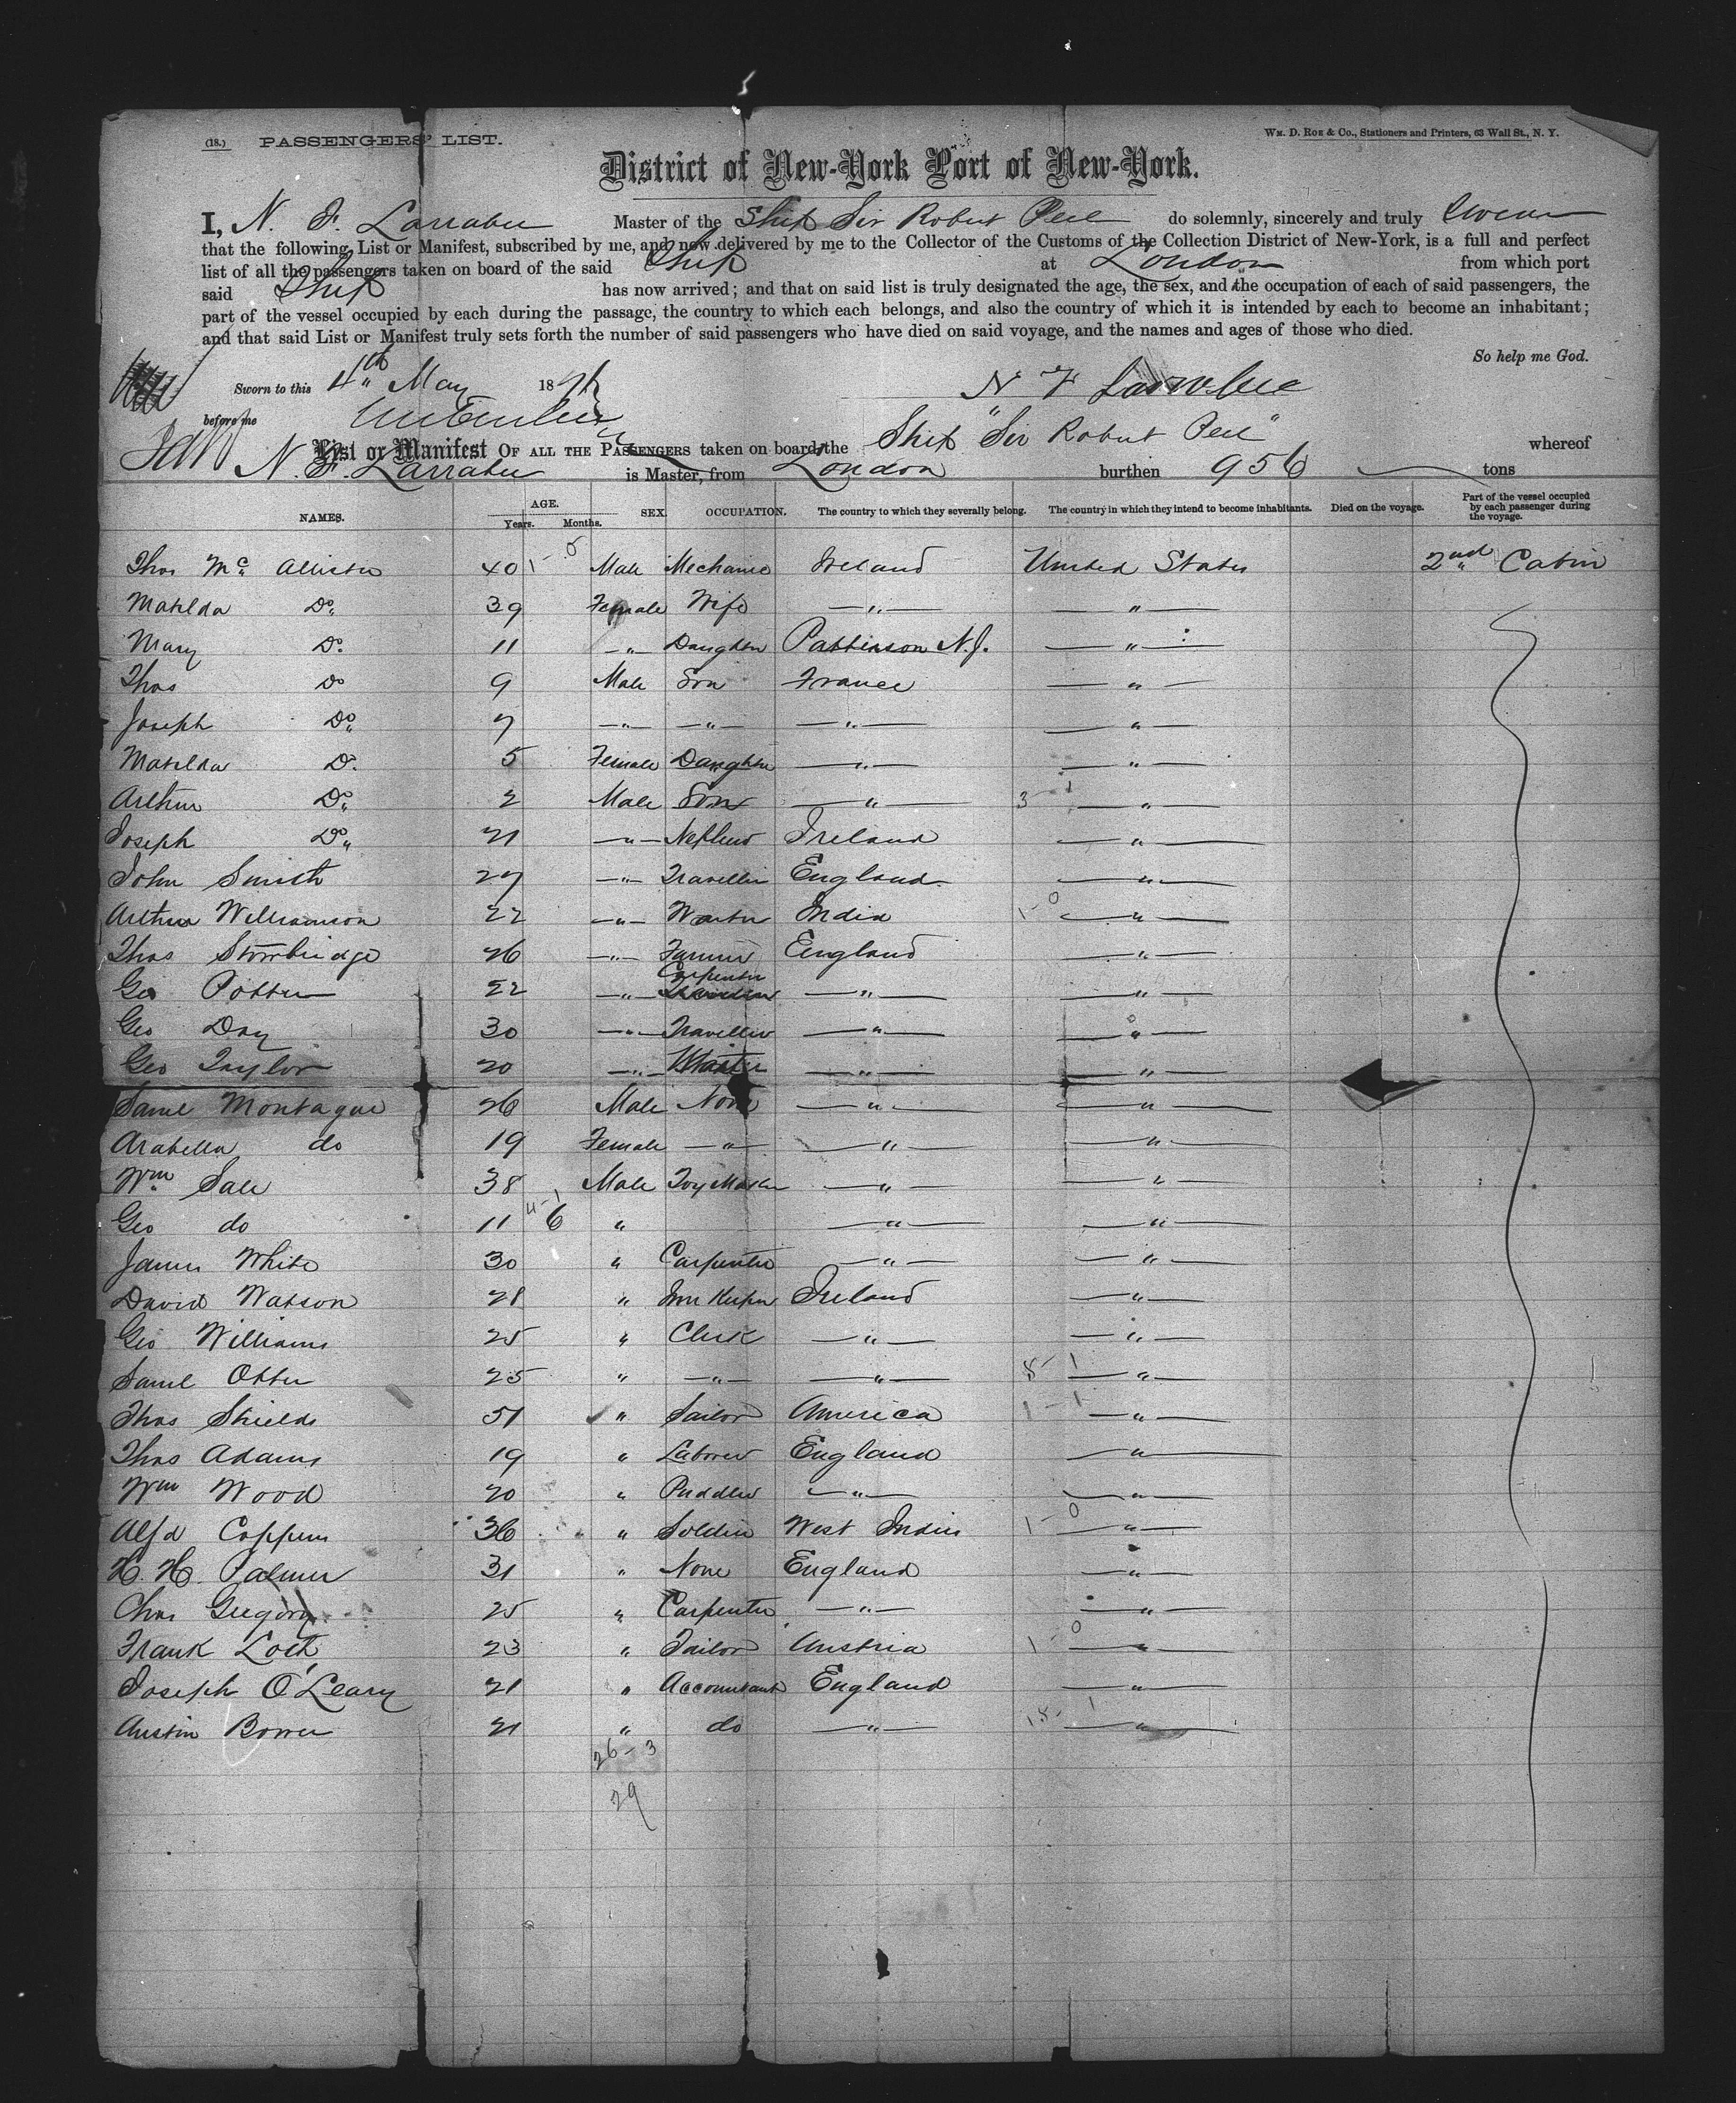 (18.) PASSENGERS' LIST.
WM. D. ROE & CO., Stationers and Printers, 63 Wall St., N. Y.
District of New-York Port of New-York.
I, N. F. Larrabee Master of the Ship Sir Robert Peel do solemnly, sincerely and truly swear
that the following List or Manifest, subscribed by me, and now delivered by me to the Collector of the Customs of the Collection District of New-York, is a full and perfect
list of all the passengers taken on board of the said Ship at London from which port
said Ship has now arrived; and that on said list is truly designated the age, the sex, and the occupation of each of said passengers, the
part of the vessel occupied by each during the passage, the country to which each belongs, and also the country of which it is intended by each to become an inhabitant;
and that said List or Manifest truly sets forth the number of said passengers who have died on said voyage, and the names and ages of those who died.
So help me God.
Sworn to this 4th May 187
N F Larrabee
before me
List or Manifest OF ALL THE PASSENGERS taken on board the Ship "Sir Robert Peel" whereof
N. F. Larrabee is Master, from London burthen 956 tons
NAMES. AGE. Years. Months. SEX. OCCUPATION. The country to which they severally belong. The country in which they intend to become inhabitants. Died on the voyage. Part of the vessel occupied by each passenger during the voyage.
Thos Mc Allister 40 1-5 Male Mechanic Ireland United States 2nd Cabin
Matilda Do 39 Female Wife — " — — " —
Mary Do 11 — " — Daughter Patterson N.J. — " —
Thos Do 9 Male Son France — " —
Joseph Do 7 — " — — " — — " — — " —
Matilda Do 5 Female Daughter — " — — " —
Arthur Do 2 Male Son — " — 3-1 — " —
Joseph Do 21 — " — Nephew Ireland — " —
John Smith 27 — " — Traveller England — " —
Arthur Williamson 22 — " — Waiter India 1-0 — " —
Thos Stombridge 26 — " — Farmer England — " —
Geo Potter 22 — " — Carpenter — " — — " —
Geo Day 30 — " — Traveller — " — — " —
Geo Taylor 20 — " — Waiter — " — — " —
Saml Montague 26 Male None — " — — " —
Arabella do 19 Female — " — — " — — " —
Wm Sale 38 Male Toy Maker — " — — " —
Geo do 11 4-1 6 " — " — — " —
James White 30 " Carpenter — " — — " —
David Watson 28 " Inn Keeper Ireland — " —
Geo Williams 25 " Clerk — " — — " —
Saml Otter 25 " — " — — " — 8-1 — " —
Thos Shields 51 " Sailor America 1-1 — " —
Thos Adams 19 " Laborer England — " —
Wm Wood 20 " Puddler — " — — " —
Alfd Coppens 36 " Soldier West Indies 1-0 — " —
H. H. Palmer 31 " None England — " —
Chas Gregory 25 " Carpenter — " — — " —
Frank Loth 23 " Tailor Austria 1-0 — " —
Joseph O'Leary 21 " Accountant England — " —
Austin Bower 21 " do — " — 15-1 — " —
26-3
29